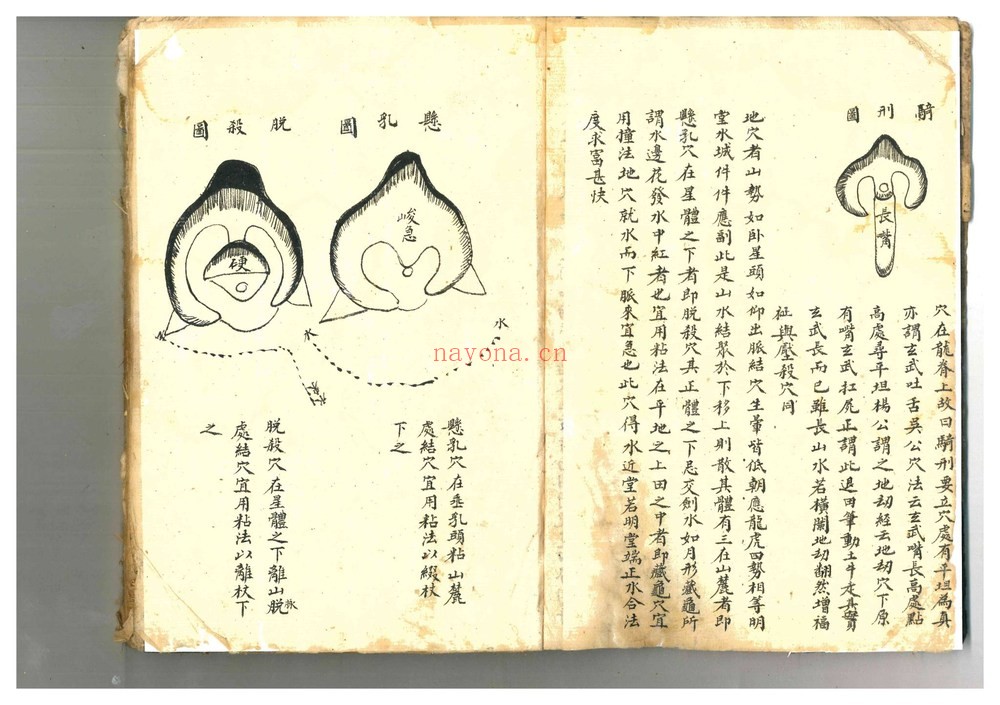 騎刑圖
長嘴
穴在龍脊上故曰騎刑要立穴處有平坦為真
亦謂玄武吐舌吳公穴法云玄武嘴長高處點
高處尋平坦楊公謂之地刼經云地刼穴下原
有嘴玄武扛尻正謂此退田筆動土牛走其實
玄武長而已雖長山水若橫闌地刼翻然增福
征與壓殺穴同
地穴者山勢如卧星頭如仰出脈結穴生暈皆低朝應龍虎四勢相等明
堂水城件件應副此是山水結聚於下移上則散其體有三在山麓者即
懸乳穴在星體之下者即脫殺穴其正體之下忌交劍水如月形藏龜所
謂水邊花發水中紅者也宜用粘法在平地之上田之中者即藏龜穴宜
用撞法地穴就水而下脈來宜急也此穴得水近堂若明堂端正水合法
度求富甚快
懸乳圖
峻急
水
水
懸乳穴在垂乳頭粘山麓
處結穴宜用粘法以綴杖
下之
脫殺圖
硬
水
脫殺穴在星體之下離山脫脈
處結穴宜用粘法以離杖下
之
nayona.cn